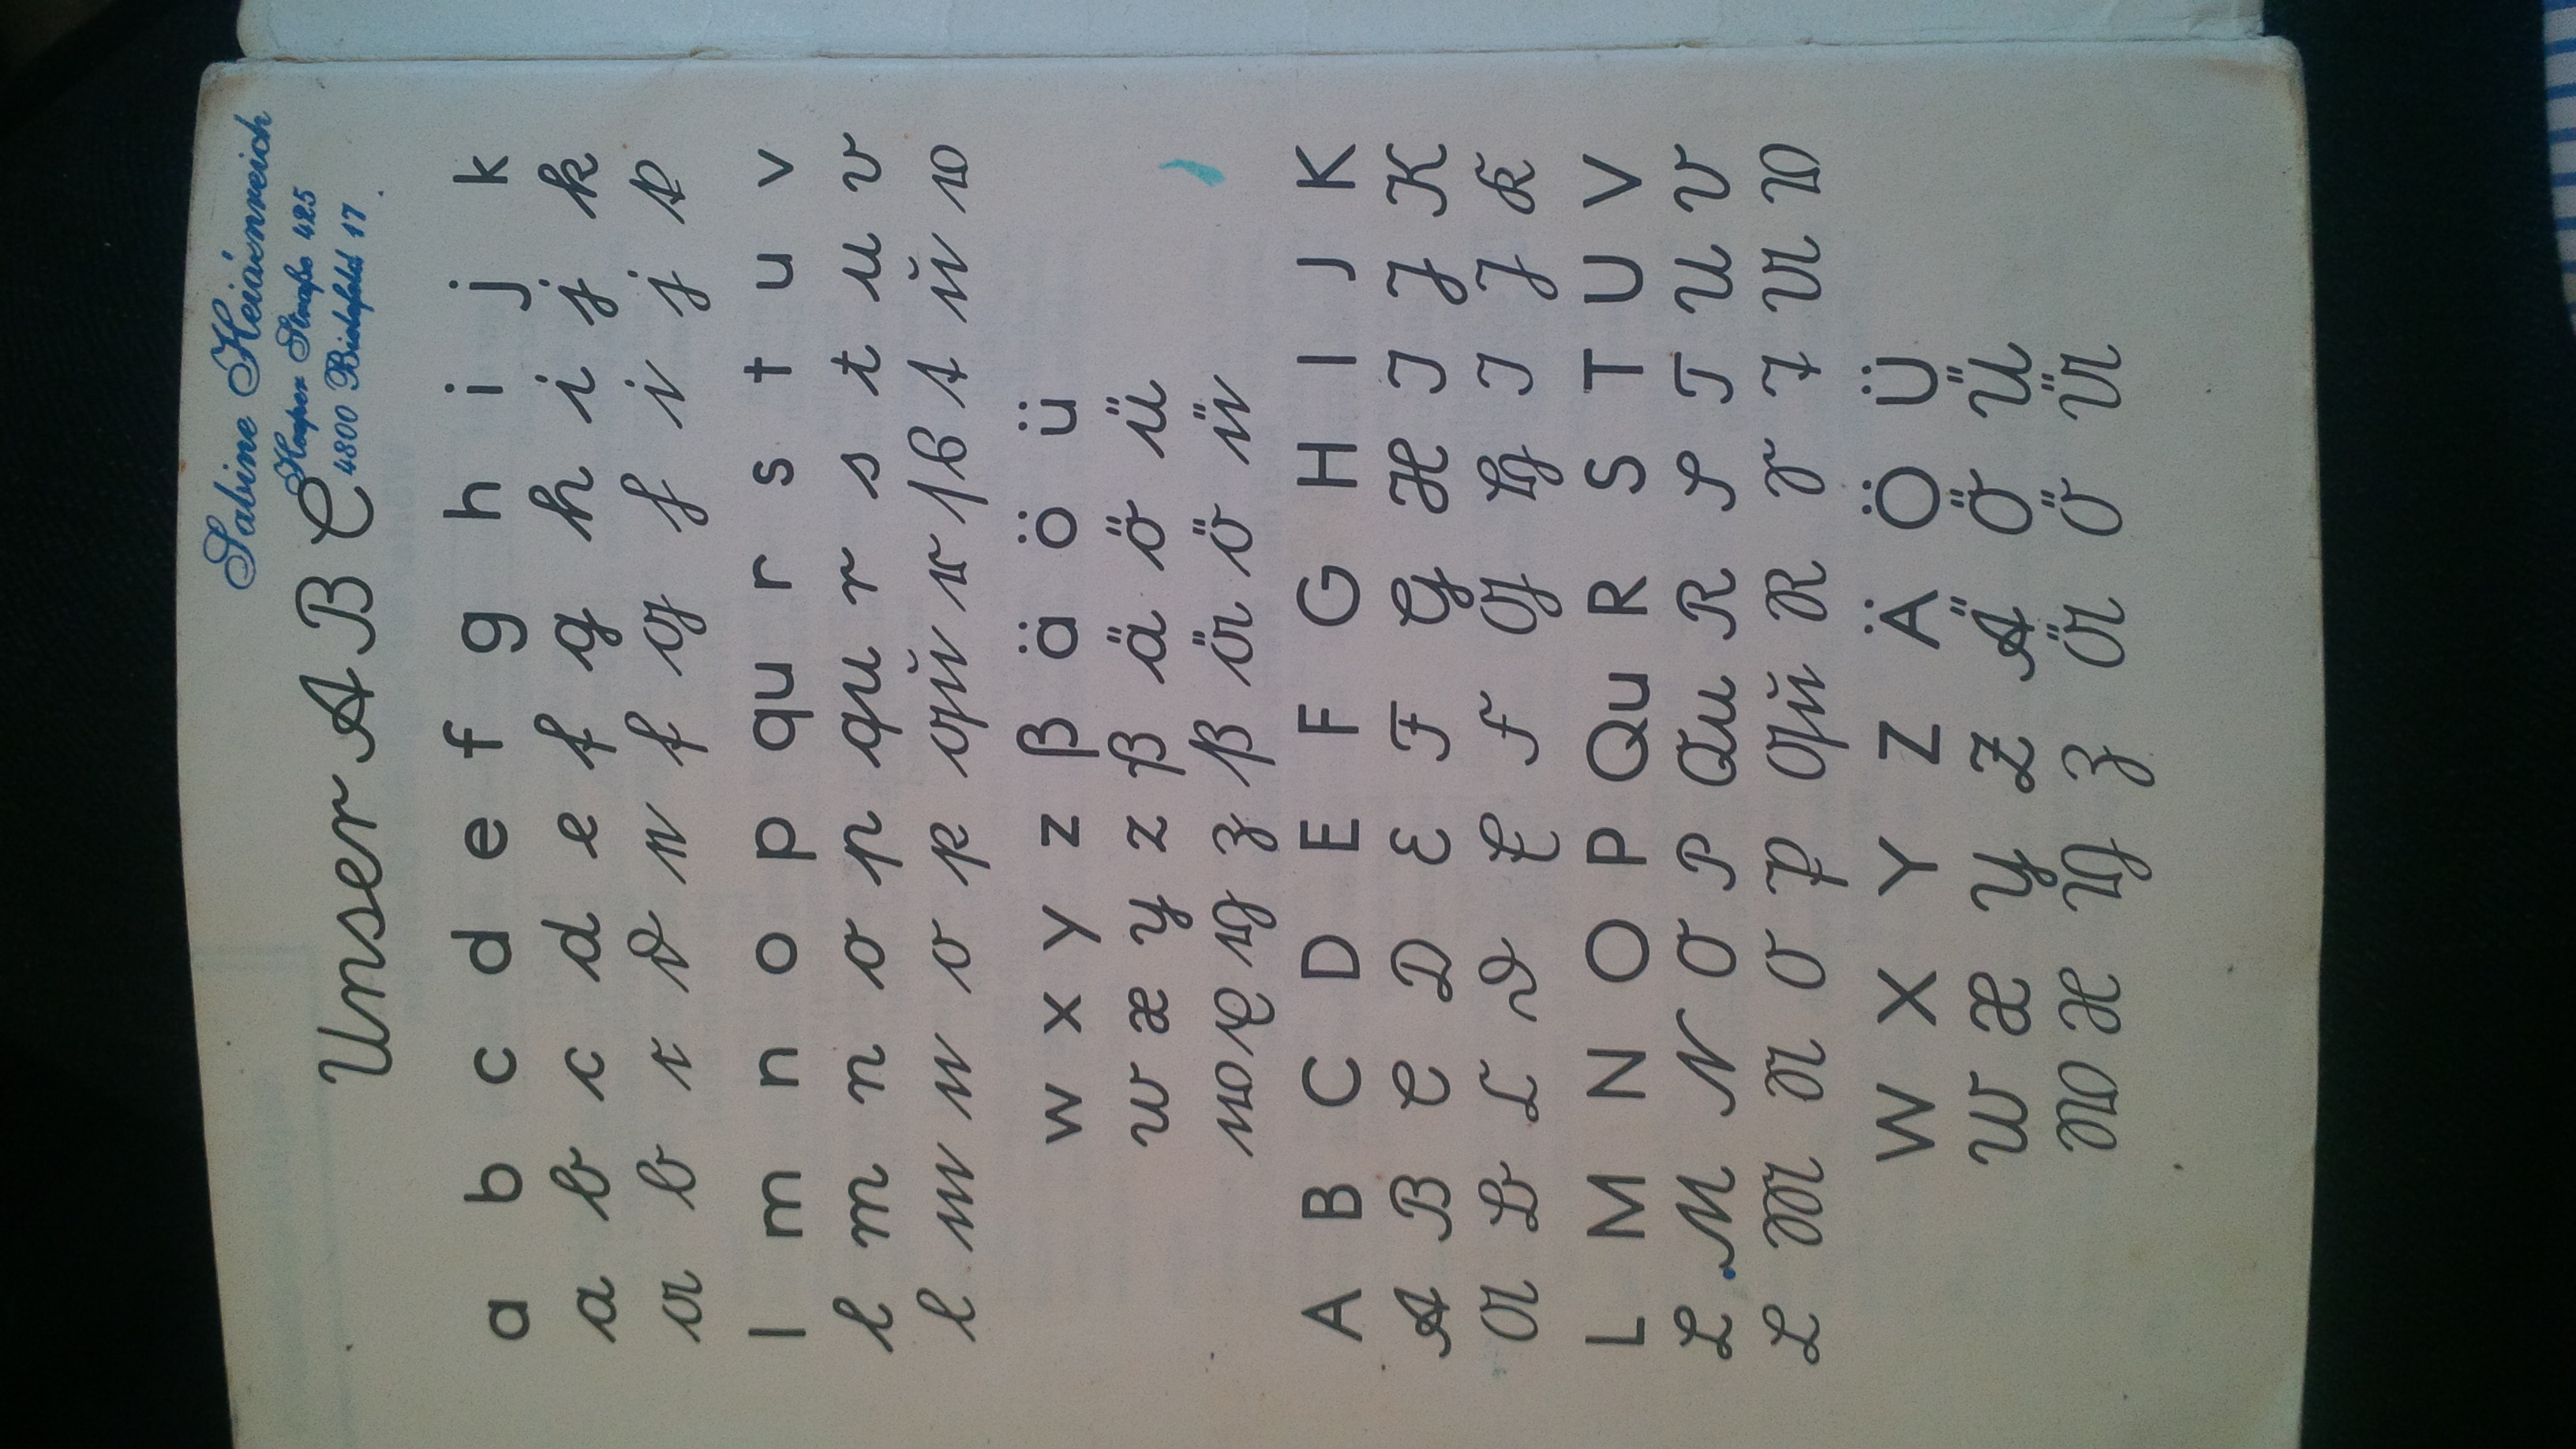 Sabine Heidnreich
Heeper Straße 425
4800 Bielefeld 17.
Unser ABC
a b c d e f g h i j k
a b c d e f g h i j k
a b c d e f g h i j k
l m n o p qu r s t u v
l m n o p qu r s t u v
l m n o p qu r s ß t u v
w x y z ß ä ö ü
w x y z ß ä ö ü
w x y z ß ä ö ü
A B C D E F G H I J K
A B C D E F G H I J K
A B C D E F G H I J K
L M N O P Qu R S T U V
L M N O P Qu R S T U V
L M N O P Qu R S T U V
W X Y Z Ä Ö Ü
W X Y Z Ä Ö Ü
W X Y Z Ä Ö Ü